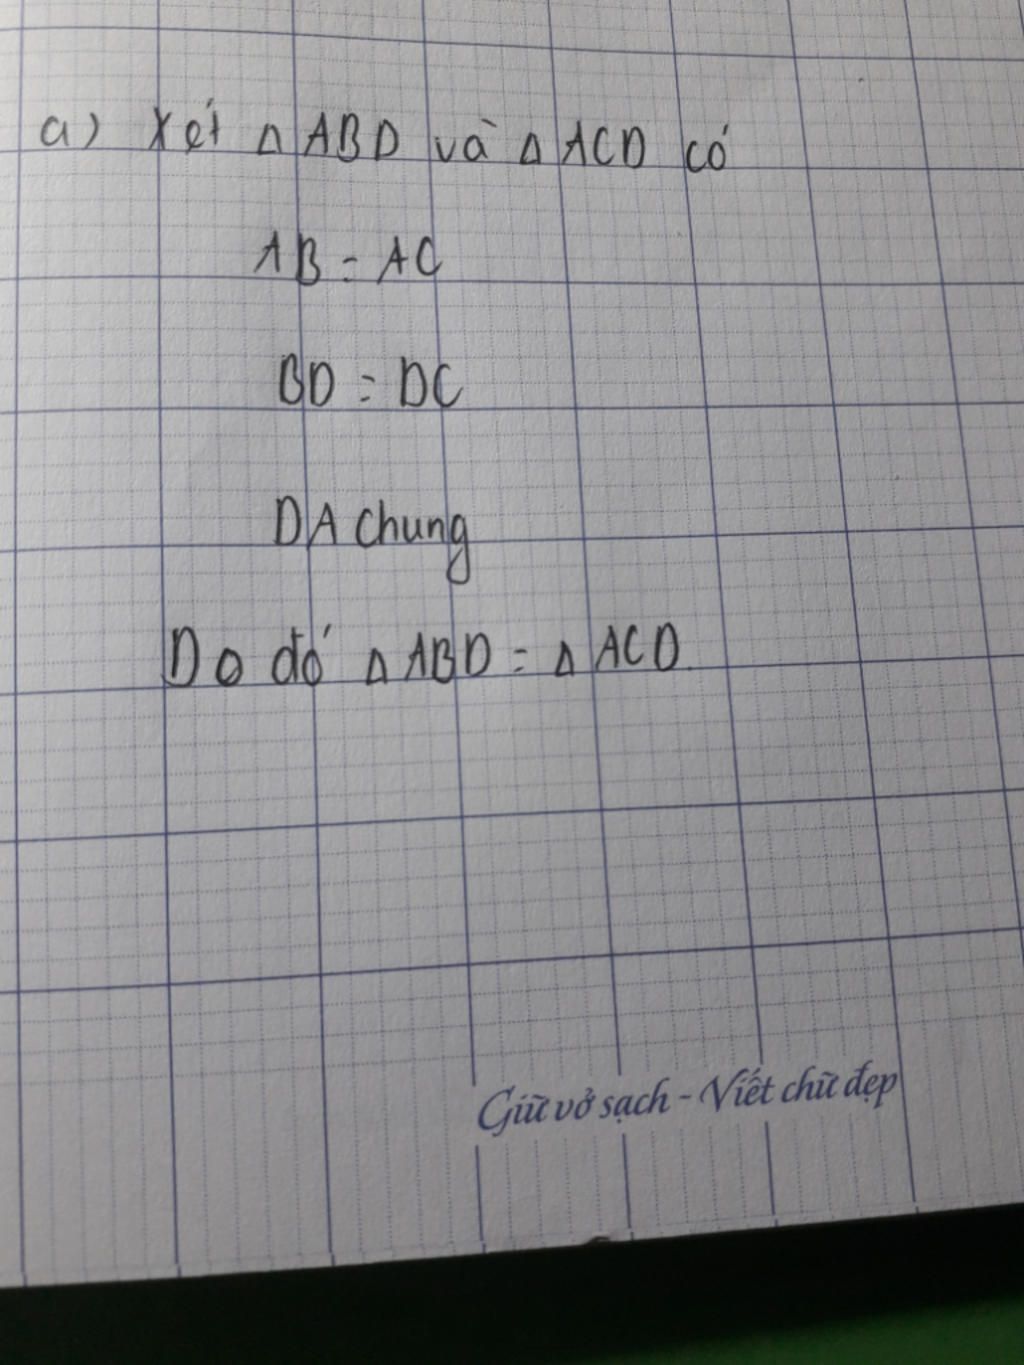 a) Xét Δ ABD và Δ ACD có
AB = AC
BD = DC
DA chung
Do đó Δ ABD = Δ ACD.
Giữ vở sạch - Viết chữ đẹp